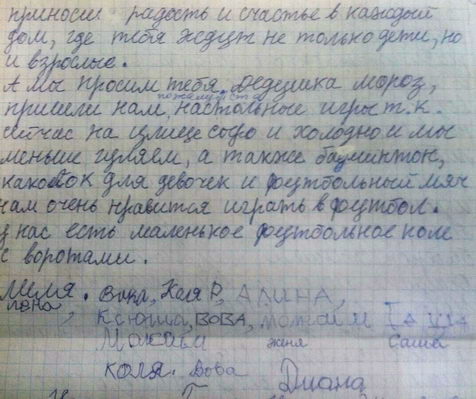 приносиш радость и счастье в каждый
дом, где тебя ждут не только дети, но
и взрослые.
А мы просим тебя, дедушка мороз,
пожалуйста
пришли нам, настольные игры т. к.
сейчас на улице сыро и холодно и мы
меньше гуляем, а также бадминтон,
для девочек и футбольный мяч
нам очень нравится играть в футбол.
У нас есть маленькое футбольное поле
с воротами.
Вика, Коля Р, АЛИНА,
Лена, Ксюша, ВОВА,
Максим Женя Саша
Коля. Вова Диана